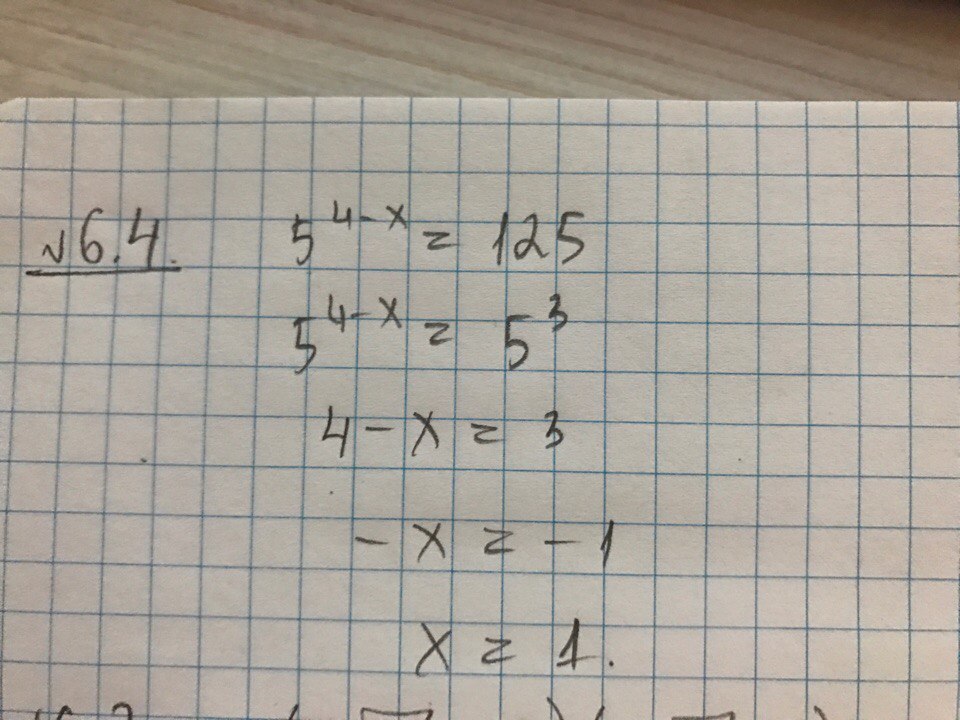 №6.4. 5^{4-x} = 125
5^{4-x} = 5^3
4 - x = 3
- x = - 1
x = 1.